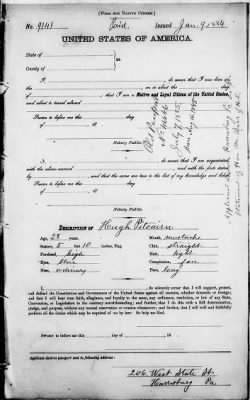 [FORM FOR NATIVE CITIZEN.]
No. 9141 Paid, Issued Jan. 9, 1884
UNITED STATES OF AMERICA.
State of
County of
I, do swear that I was born in
the , in or about the day of
, that I am a Native and Loyal Citizen of the United States,
and about to travel abroad
Sworn to before me this day of , 18
Notary Public.
I, do swear that I am acquainted
with the above-named , and with the facts stated
by , and that the same are true to the best of my knowledge and belief.
Sworn to before me this day of , 18
Notary Public.
Old Passport
July 7, 1865
DESCRIPTION OF Hugh Pitcairn
Age, 28 years. Mouth, mustache
Stature, 5 feet 10 inches, Eng. Chin, straight
Forehead, high Hair, light
Eyes, blue Complexion, fair
Nose, ordinary Face, long
I, do solemnly swear that I will support, protect,
and defend the Constitution and Government of the United States against all enemies, whether domestic or foreign;
and that I will bear true faith, allegiance, and loyalty to the same, any ordinance, resolution, or law of any State,
Convention, or Legislature to the contrary notwithstanding; and further, that I do this with a full determination,
pledge, and purpose, without any mental reservation or evasion whatsoever; and further, that I will well and faithfully
perform all the duties which may be required of me by law. So help me God.
Sworn to before me this day of , 18
Applicant desires passport sent to following address:
206 West State St.
Harrisburg Pa.